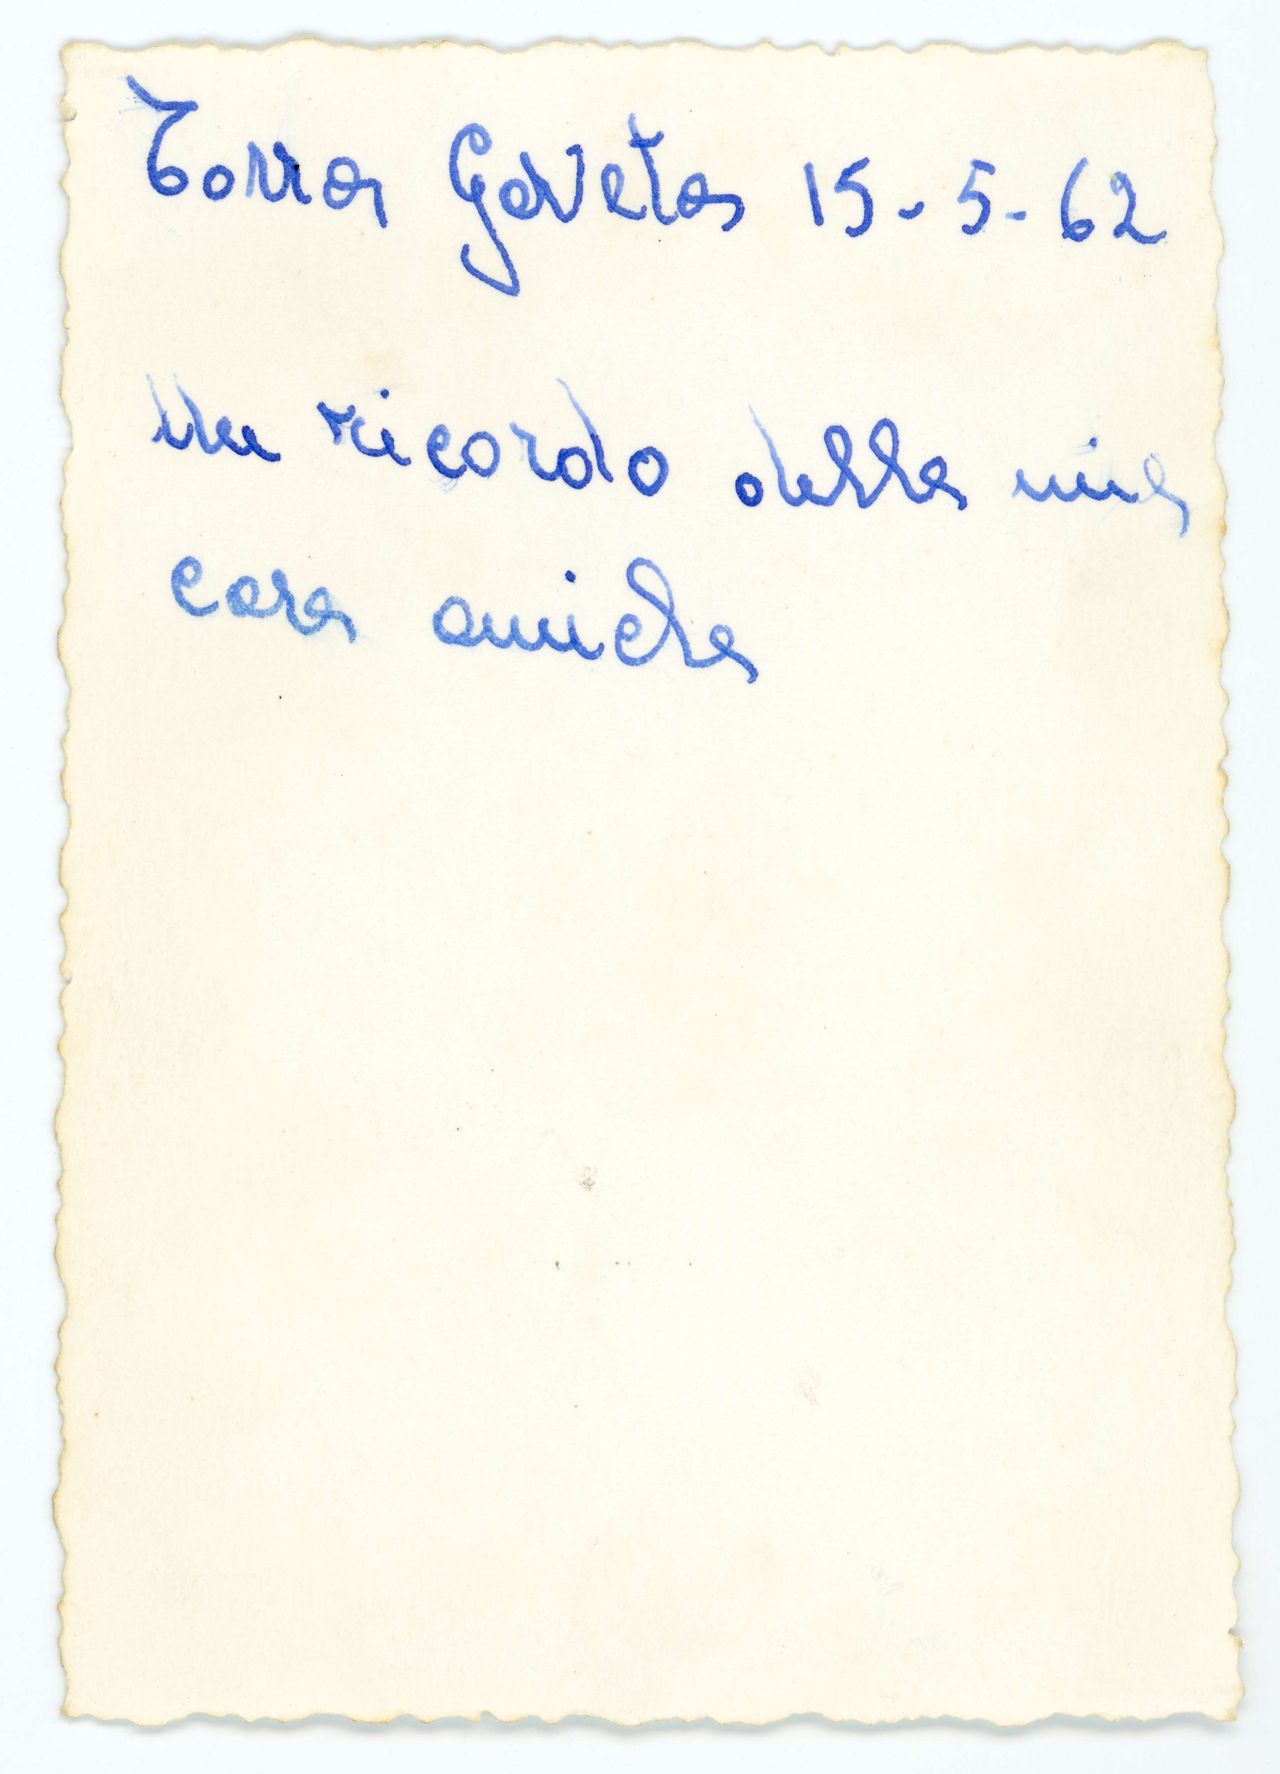 Torra Gaveta 15-5-62
Un ricordo della mia
cara amicha